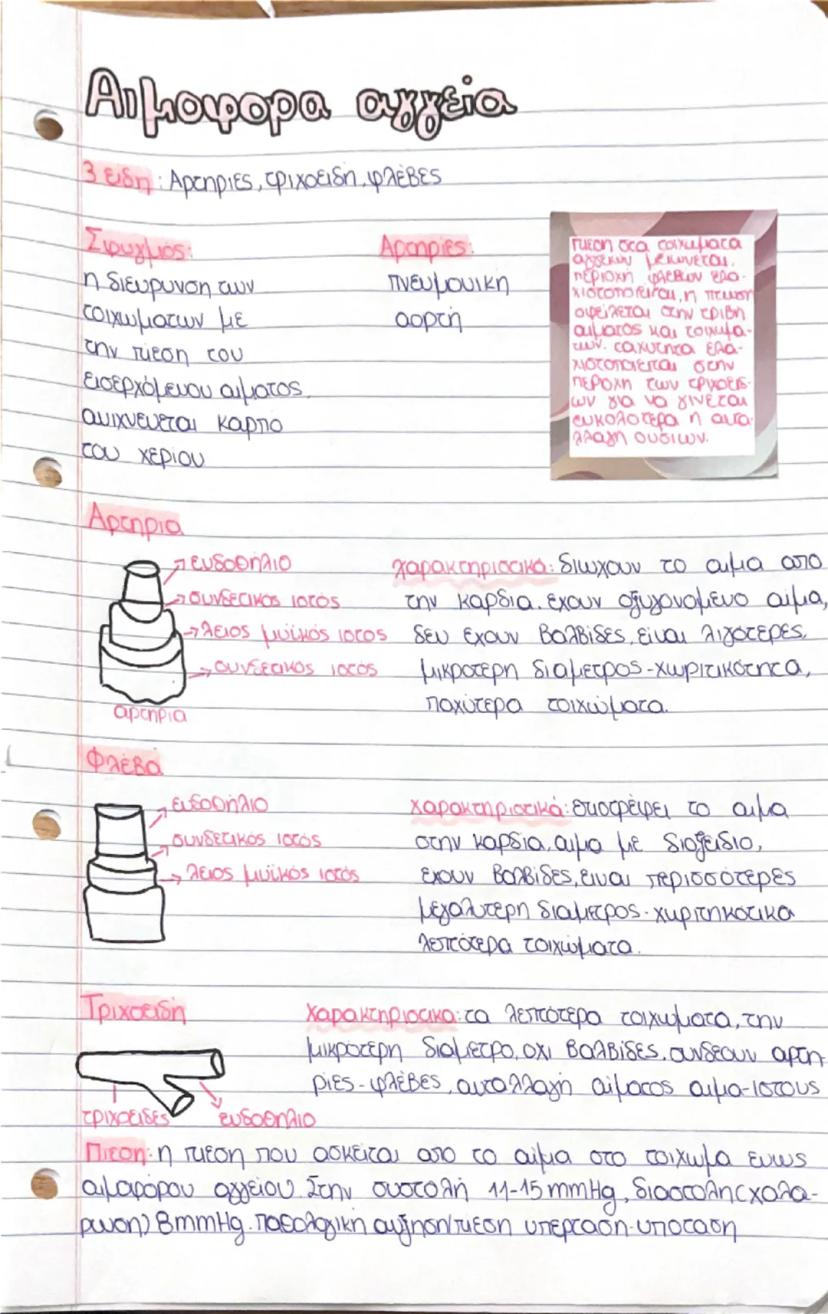 Αιμοφορα αγγεία
3 είδη: Αρτηριες, τριχοειδή, φλέβες
Σφυγμός:
η διευρυνση των
τοιχωματων με
την πιεση του
εισερχόμενου αιματος.
ανιχνευεται καρπο
του χεριου
Αρτηριες:
πνευμονική
αορτή
πιεση στα τοιχωματα
αγγειων μειωνεται.
περιοχη φλεβων ελα-
χιστοποιειται, η πτωση
οφείλεται στην τριβη
αιματος και τοιχωμα-
των. ταχυτητα ελα-
χιστοποιειται στην
περιοχη των τριχοειδ-
ων για να γινεται
ευκολοτερα η ανα-
λλαγη ουσιων.
Αρτηρια
ενδοθήλιο
συνδετικος ιστος
λειος μυϊκός ιστος
συνδετικος ιστος
αρτηρια
χαρακτηριστικα: διωχουν το αιμα απο
την καρδια. εχουν οξυγονομενο αιμα,
δεν εχουν βαλβιδες, ειναι λιγοτερες,
μικροτερη διαμετρος-χωριτικότητα,
παχύτερα τοιχώματα.
Φλέβα
ενδοθήλιο
συνδετικός ιστός
λειος μυϊκος ιστός
χαρακτηριστικά: επιστρέφει το αιμα
στην καρδια, αιμα με διοξειδιο,
εχουν βαλβιδες, ειναι περισσότερες
μεγαλυτερη διαμετρος-χωριτηκοτικα
λεπτότερα τοιχώματα.
Τριχοειδή
τριχοειδες
ενδοθηλιο
χαρακτηριστικα: τα λεπτότερα τοιχωματα, την
μικροτερη διαμετρο, οχι βαλβιδες, συνδεουν αρτη-
ριες-φλέβες, ανταλλαγή αίματος αιμα-ιστους
Πιεση: η πιεση που ασκειται απο το αίμα στο τοιχωμα ενως
αιμαφόρου αγγειου. Στην συστολή 11-15 mmHg, διαστολης(χαλα-
ρωση) 8mmHg. παθολογικη αυξηση/πιεση υπερταση-υποταση